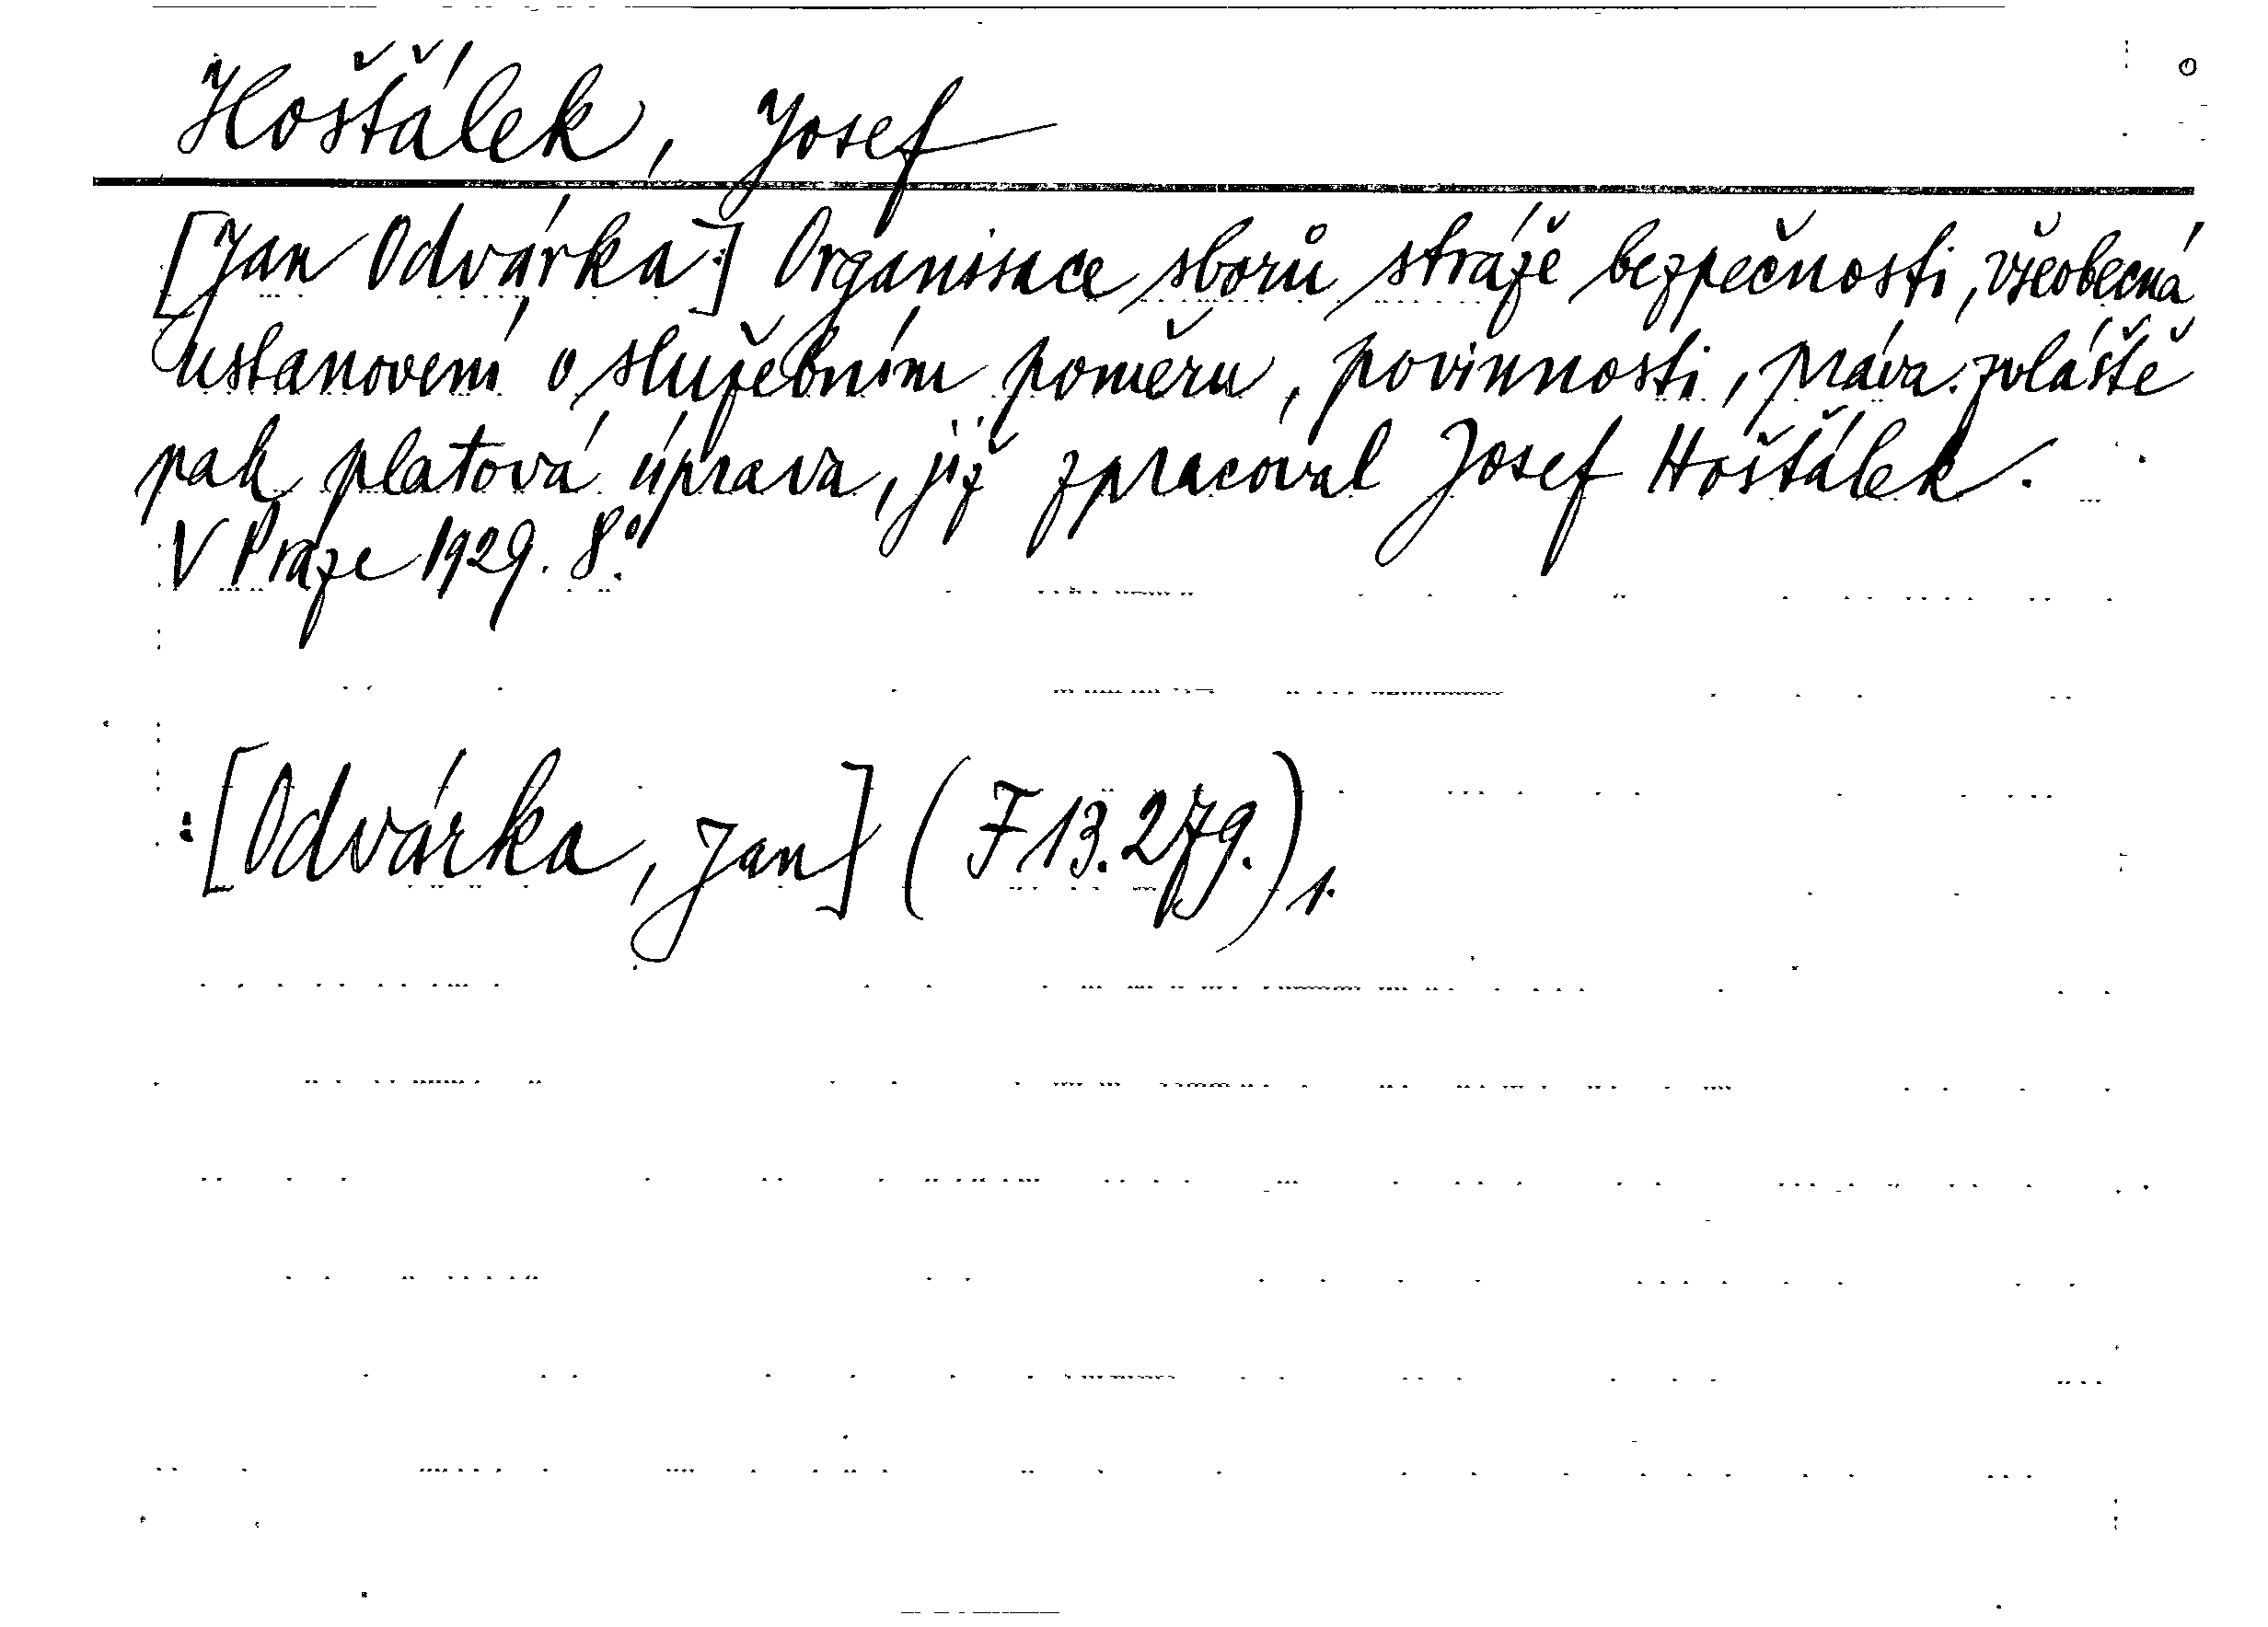 Hošťálek, Josef
[Jan Odvárka] Organisace sborů stráže bezpečnosti, všeobecná
ustanovení o služebním poměru, povinnosti, práva. zvláště
pak platová úprava, již zpracoval Josef Hošťálek.
V Praze 1929. 8°.
:[Odvárka, Jan] (F 13.279.) 1.